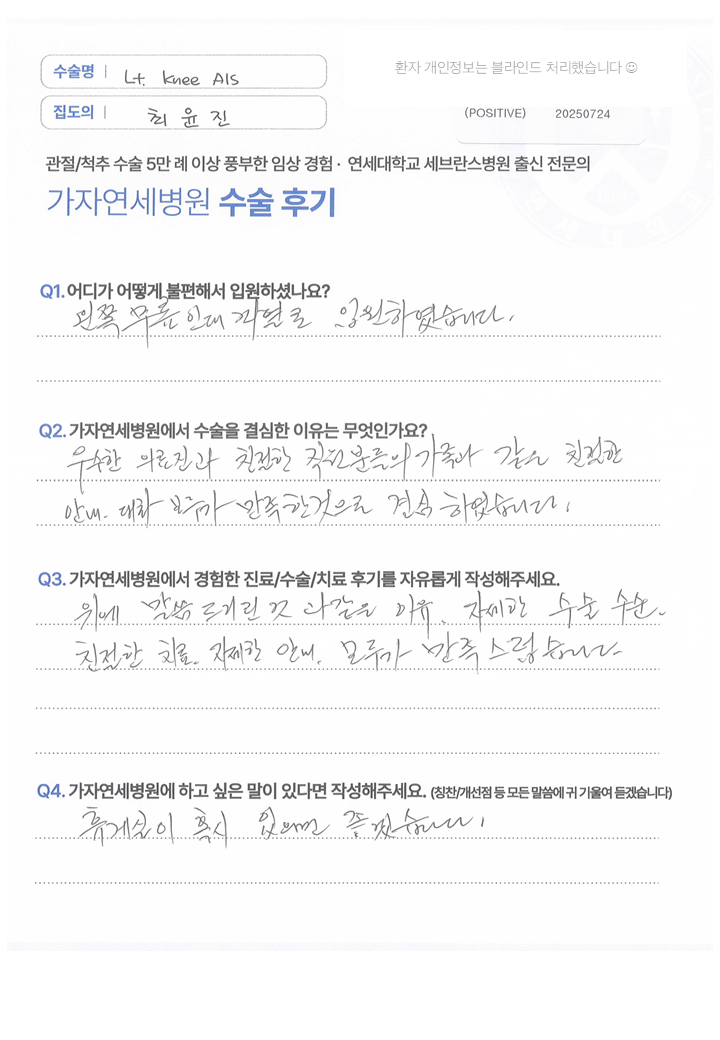 수술명 | Lt. knee A/S
환자 개인정보는 블라인드 처리했습니다 ☺
집도의 | 최윤진
(POSITIVE) 20250724
관절/척추 수술 5만 례 이상 풍부한 임상 경험 · 연세대학교 세브란스병원 출신 전문의
가자연세병원 수술 후기
Q1. 어디가 어떻게 불편해서 입원하셨나요?
왼쪽 무릎 인대 파열로 입원하였습니다.
Q2. 가자연세병원에서 수술을 결심한 이유는 무엇인가요?
우수한 의료진과 친절한 직원분들의 가족과 같은 친절한
안내. 대화 모두가 만족한것으로 결심 하였습니다.
Q3. 가자연세병원에서 경험한 진료/수술/치료 후기를 자유롭게 작성해주세요.
위에 말씀 드린 것 과같은 이유. 자세한 수술
친절한 치료. 자세한 안내. 모두가 만족 스럽습니다
Q4. 가자연세병원에 하고 싶은 말이 있다면 작성해주세요. (칭찬/개선점 등 모든 말씀에 귀 기울여 듣겠습니다)
휴게실이 혹시 있으면 좋겠습니다.